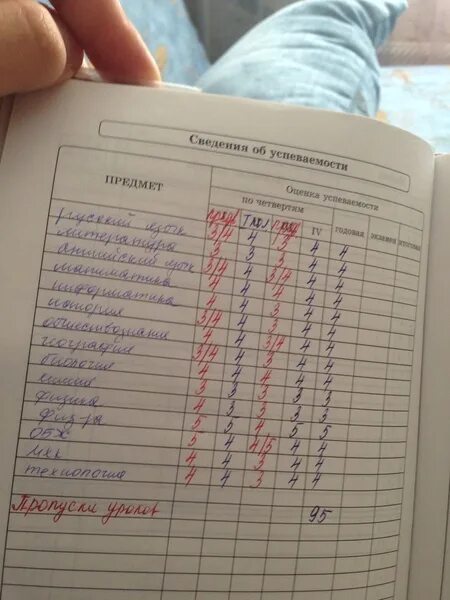 Сведения об успеваемости
ПРЕДМЕТ
Оценка успеваемости
по четвертям
IV годовая экзамен итоговая
русский язык 3/4 4 3 4 4
литература 3 4 3 4 4
английский язык 3/4 4 3/4 4 4
математика 4 4 3 4 4
информатика 4 4 4 4 4
история 3/4 4 3 4 4
обществознание 4 4 3/4 4 4
география 3/4 4 3 4 4
биология 4 4 4 4 4
химия 3 3 3 3 3
физика 4 3 3 3 3
физ-ра 5 5 4 5 5
ОБЖ 5 4 4/5 4 4
мхк 4 4 3 4 4
технология 4 4 3 4 4
Пропуски уроков 95